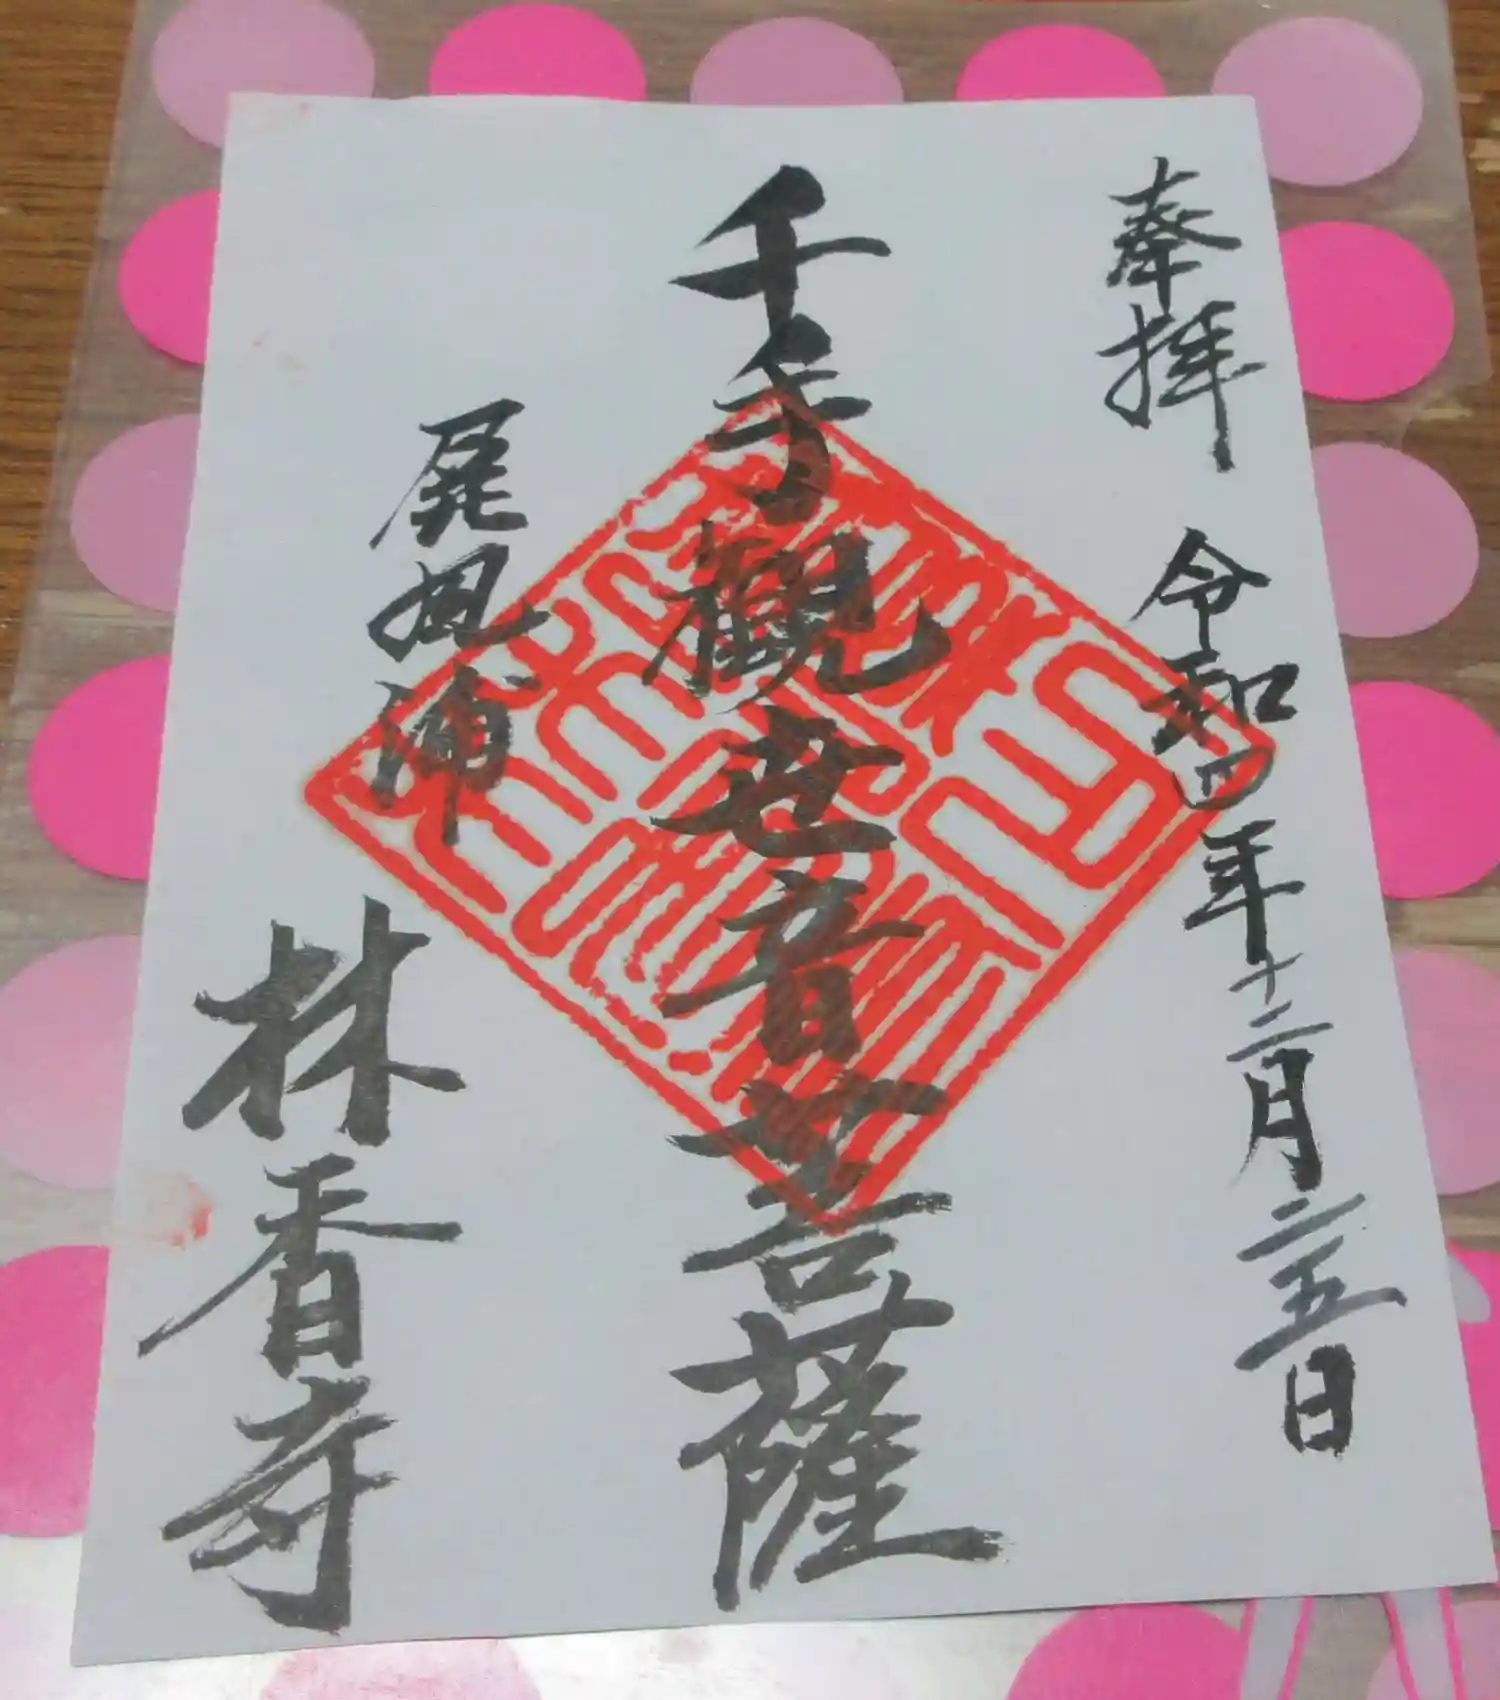 奉拝 令和四年十二月二五日
千手観世音菩薩
屏風浦
林香寺